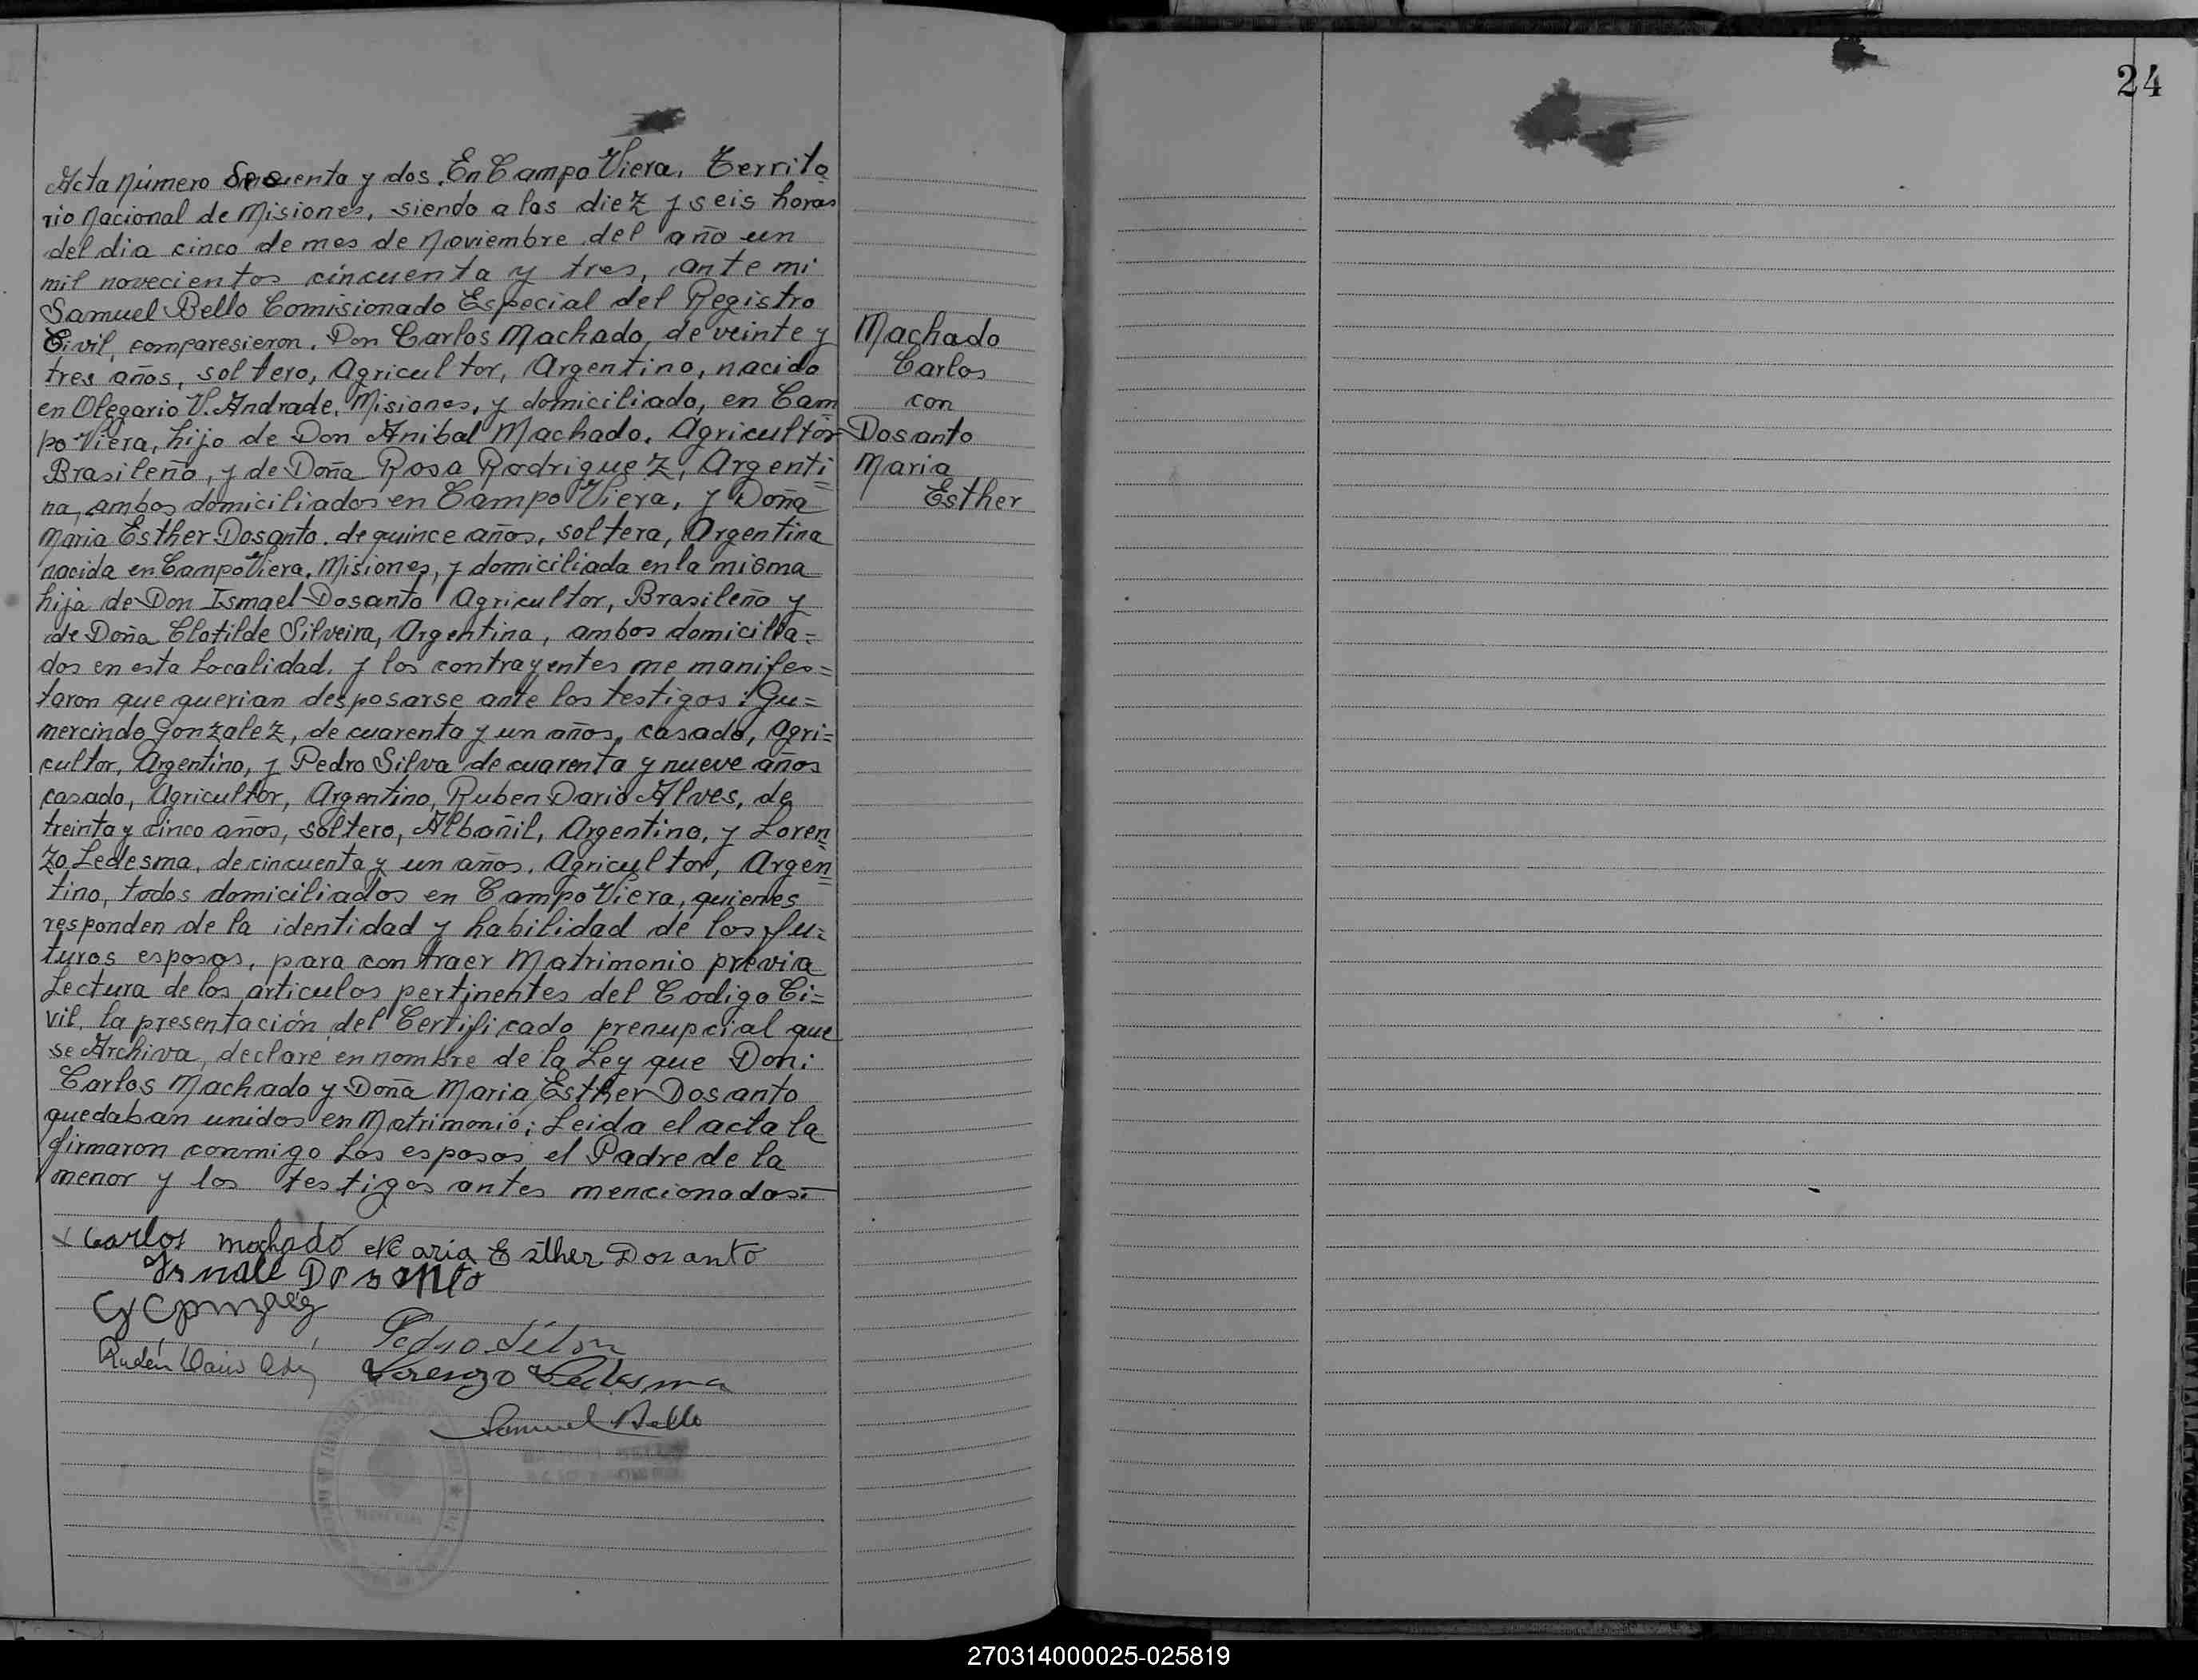 24
Acta número y dos. En Campo Viera. Territo
rio Nacional de Misiones, siendo a las diez y seis horas
del dia cinco de mes de Noviembre del año un
mil novecientos cincuenta y tres, ante mi
Samuel Bello Comisionado Especial del Registro
Civil, comparesieron. Don Carlos Machado, de veinte y
tres años, soltero, Agricultor, Argentino, nacido
en Olegario V. Andrade, Misiones, y domiciliado, en Cam
po Viera, hijo de Don Anibal Machado, Agricultor
Brasileño, y de Doña Rosa Rodriguez, Argenti=
na, ambos domiciliados en Campo Viera, y Doña
Maria Esther Dosanto. de quince años, soltera, Argentina
nacida en Campo Viera, Misiones, y domiciliada en la misma
hija de Don Ismael Dosanto Agricultor, Brasileño y
de Doña Clotilde Silveira, Argentina, ambos domicilia=
dos en esta Localidad, y los contrayentes me manifes=
taron que querian desposarse ante los testigos: Gu=
mercindo Gonzalez, de cuarenta y un años, casado, Agri=
cultor, Argentino, y Pedro Silva de cuarenta y nueve años
casado, Agricultor, Argentino, Ruben Dario Alves, de
treinta y cinco años, soltero, Albañil, Argentino, y Loren=
zo Ledesma, de cincuenta y un años, Agricultor, Argen=
tino, todos domiciliados en Campo Viera, quienes
responden de la identidad y habilidad de los fu=
turos esposos, para contraer Matrimonio previa
Lectura de los articulos pertinentes del Codigo Ci=
vil, la presentación del Certificado prenupcial que
se Archiva, declare en nombre de la Ley que Don:
Carlos Machado y Doña Maria Esther Dosanto
quedaban unidos en Matrimonio; Leida el acta la
firmaron conmigo Los esposos el Padre de la
menor y los testigos antes mencionados.=
Machado
Carlos
con
Dosanto
Maria
Esther
x Carlos machado Maria Esther Dosanto
Ismael Dosanto
G Gonzalez
Pedro Silva
Rubén Dario Alves
Lorenzo Ledesma
Samuel Bello
270314000025-025819